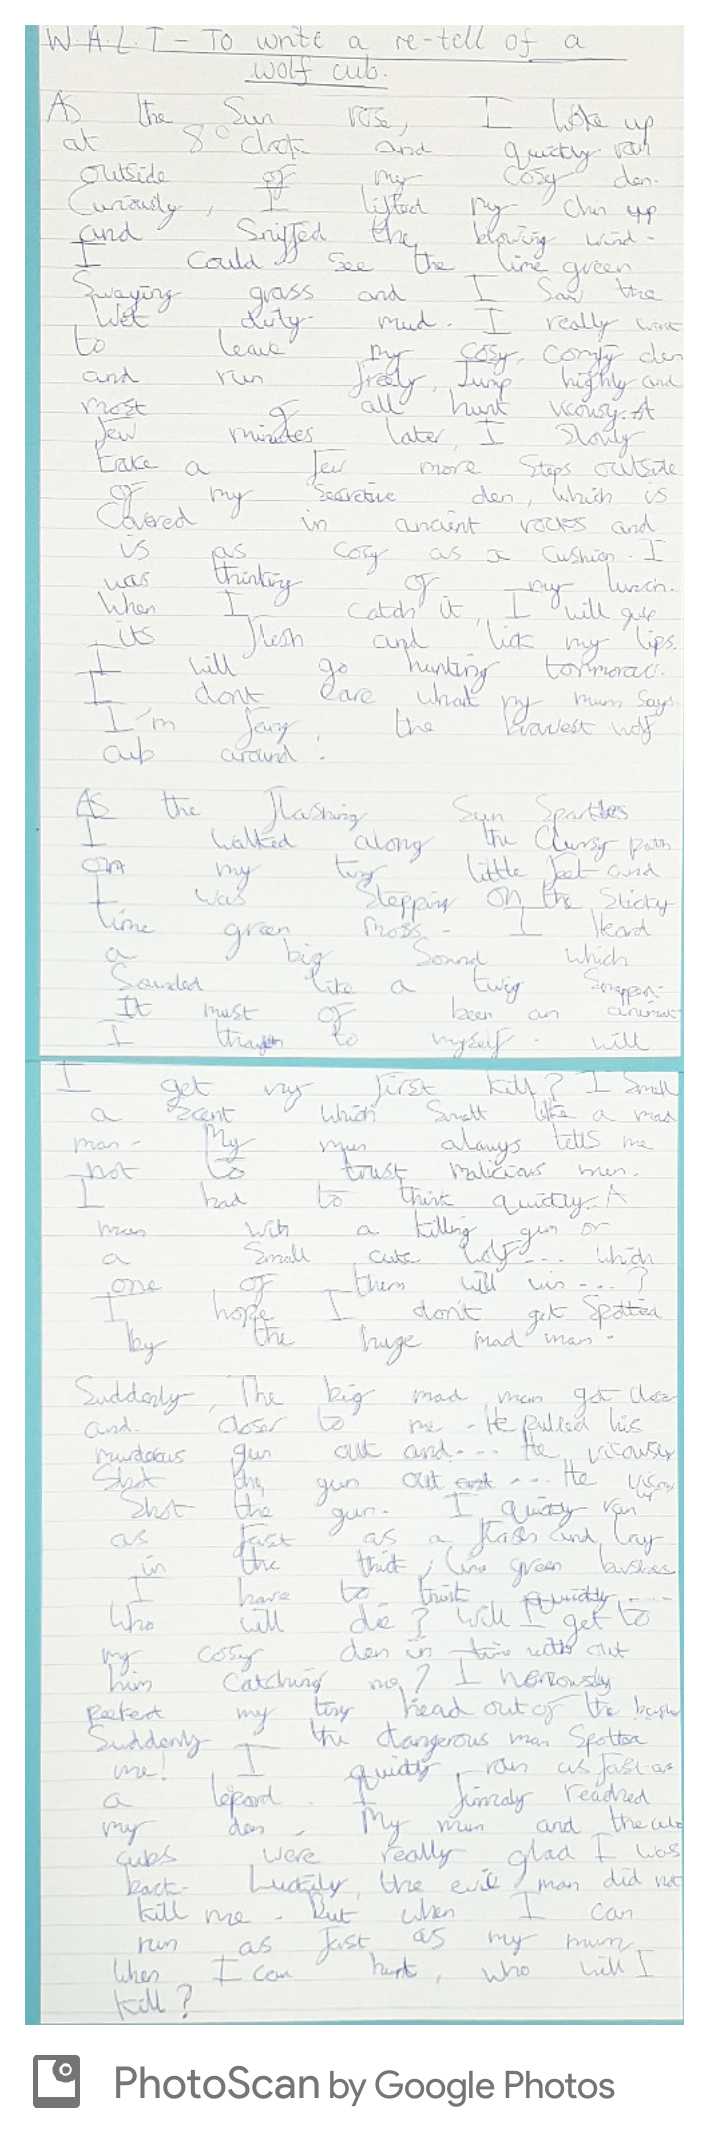 W.A.L.T - To write a re-tell of a
wolf cub.
As the Sun rose, I woke up
at 8 o'clock and quickly ran
outside of my cosy den.
Curiously, I lifted my chin up
and sniffed the blowing wind.
I could see the lime green
Swaying grass and I saw the
wet dirty mud. I really want
to leave my cosy, comfy den
and run freely, Jump highly and
most of all hunt A
few minutes later, I slowly
take a few more steps outside
of my secretive den, which is
Covered in ancient rocks and
is as cosy as a cushion. I
was thinking of my lunch.
When I catch it, I will
its flesh and lick my lips.
I will go hunting
I dont care what my mum says.
I'm the bravest wolf
cub around!
As the flashing Sun Sparkles
I walked along the path
on my tiny little feet and
I was Stepping on the Sticky
lime green moss. I Heard
a big Sound which
Sounded like a twig
It must of been an
I to myself. will
I get my first kill? I Smell
a scent which Smelt like a mad
man. My mum always tells me
not to trust malicious men.
I had to think quickly. A
man with a killing gun or
a Small cute wolf.... which
one of them will win....?
I hope I don't get Spotted
by the huge mad man.
Suddenly, The big mad man got closer
and closer to me. He pulled his
murderous gun out and.... He
Shot the gun out .... He
Shot the gun. I quickly ran
as fast as a flash and lay
in the thick, lime green bushes
I have to think quickly....
Who will die? Will I get to
my cosy den in time with out
him catching me? I
my tiny head out of the
Suddenly the dangerous man Spotted
me! I quickly ran as fast as
a lepard. I reached
my den. My mum and the
cubs were really glad I was
back. Luckily, the evil man did not
kill me. But when I can
run as fast as my mum,
When I can hunt, who will I
kill?
PhotoScan by Google Photos